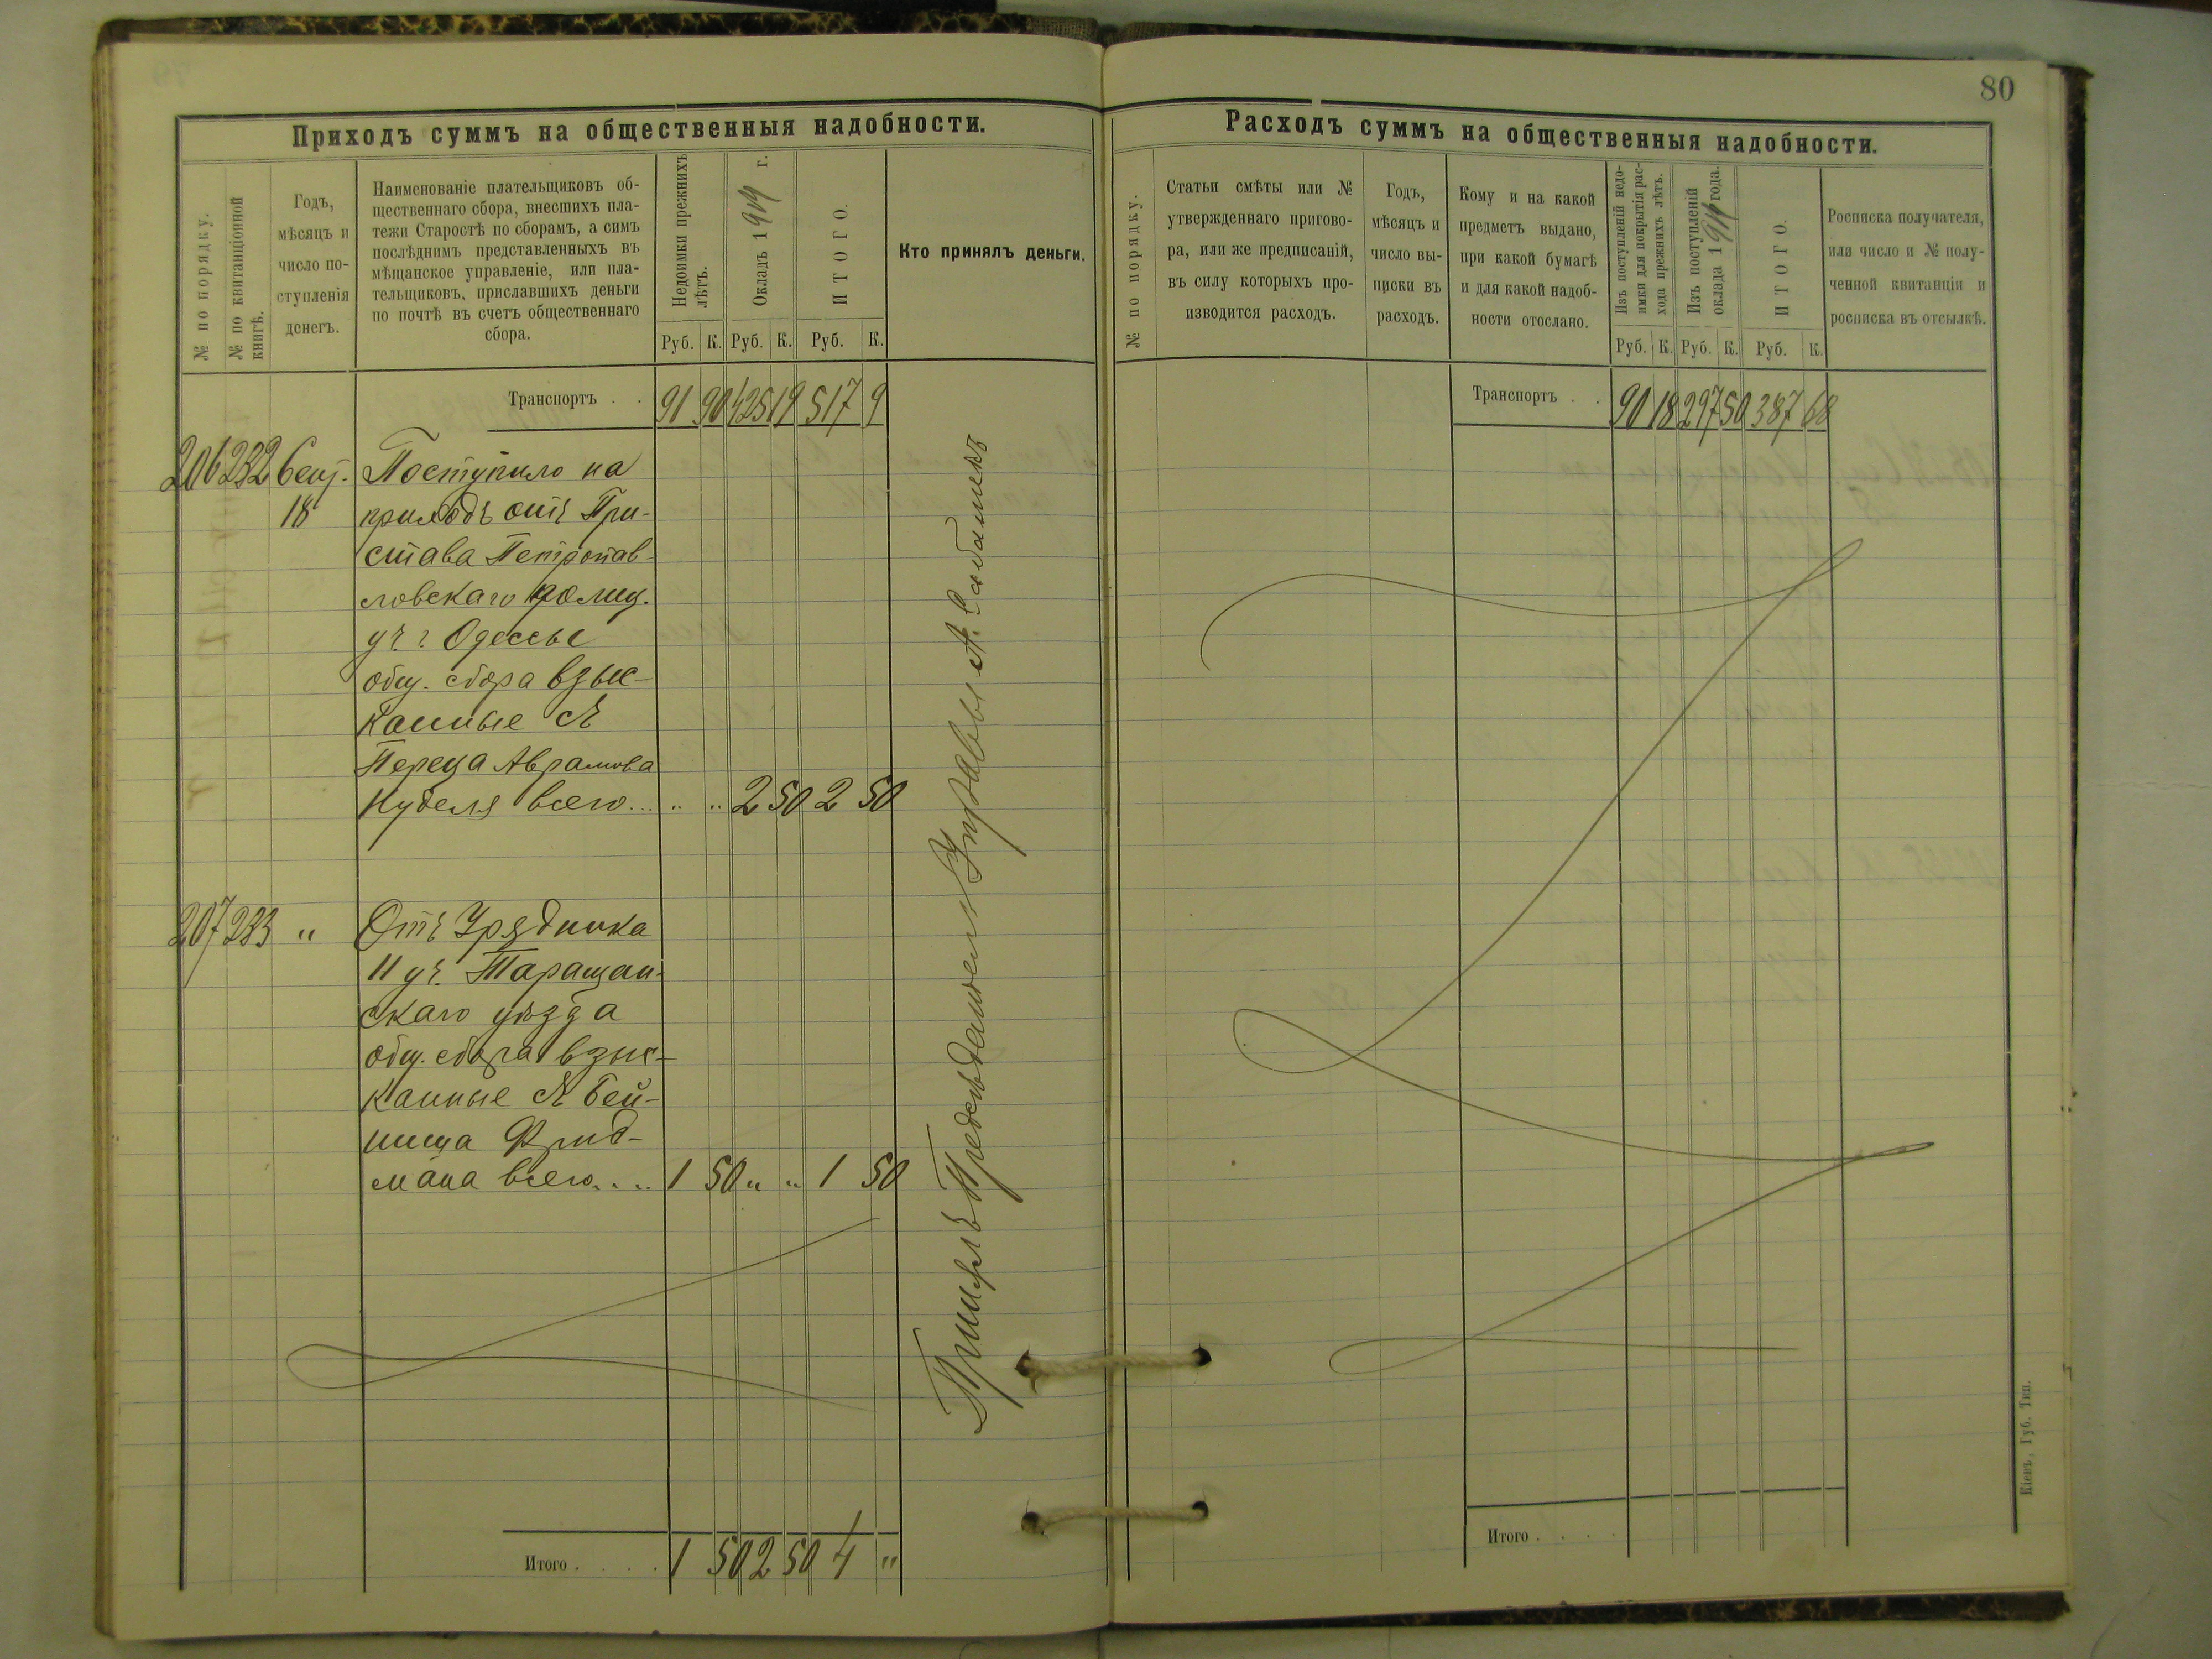 80
Приходъ суммъ на общественныя надобности.
№ по порядку.
№ по квитанціонной
книгѣ.
Годъ,
мѣсяцъ и
число по-
ступленія
денегъ.
Наименованіе плательщиковъ об-
щественнаго сбора, внесшихъ пла-
тежи Старостѣ по сборамъ, а симъ
послѣднимъ представленныхъ въ
мѣщанское управленіе, или пла-
тельщиковъ, приславшихъ деньги
по почтѣ въ счетъ общественнаго
сбора.
Недоимки прежнихъ
лѣтъ.
Окладъ 19 г.
ИТОГО.
Кто принялъ деньги.
Руб. К. Руб. К. Руб. К.
Транспортъ . . 91 90 425 19 517 9
206 232 Сент. Поступило на
18 приходъ отъ При-
става Петропав-
ловскаго полиц.
уч. г. Одессы
общ. сбора взыс-
канные съ
Переца Аврамова
Нуделя всего... " " 2 50 2 50
207 233 " Отъ Урядника
11 уч. Таращан-
скаго уѣзда
общ. сбора взыс-
канные съ Бей-
ниша Фрид-
мана всего.... 1 50 " " 1 50
Итого . . . . 1 50 2 50 4 "
Принялъ Предсѣдатель Управы А.
Расходъ суммъ на общественныя надобности.
№ по порядку.
Статьи смѣты или №
утвержденнаго пригово-
ра, или же предписаній,
въ силу которыхъ про-
изводится расходъ.
Годъ,
мѣсяцъ и
число вы-
писки въ
расходъ.
Кому и на какой
предметъ выдано,
при какой бумагѣ
и для какой надоб-
ности отослано.
Изъ поступленій недо-
имки для покрытія рас-
хода прежнихъ лѣтъ.
Изъ поступленій
оклада 19 года.
ИТОГО.
Росписка получателя,
или число и № полу-
ченной квитанціи и
росписка въ отсылкѣ.
Руб. К. Руб. К. Руб. К.
Транспортъ . . 90 18 297 50 387 68
Итого . . . .
Кіевъ, Губ. Тип.